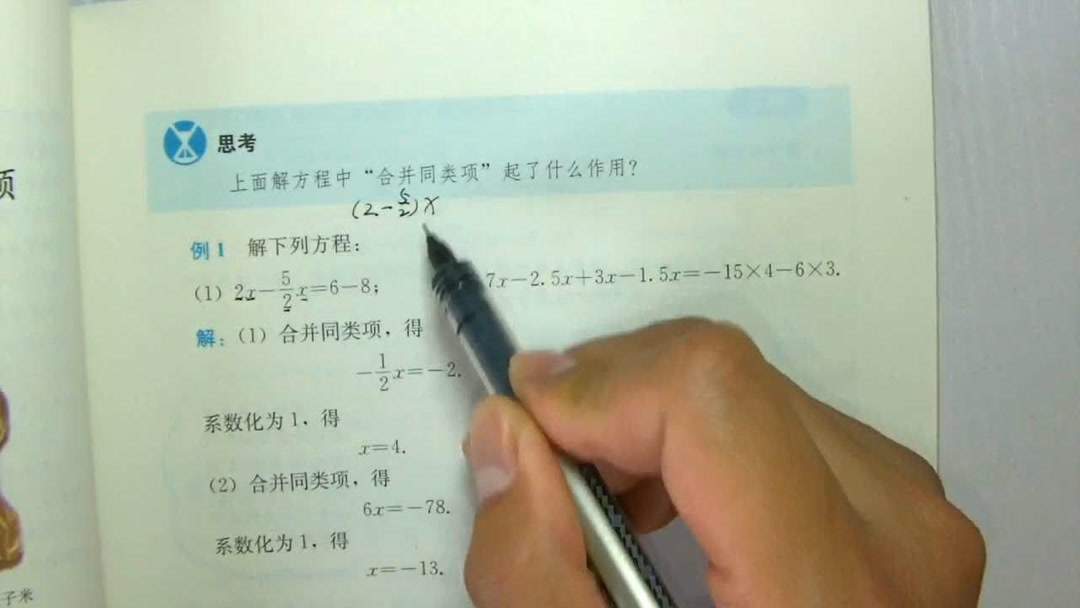 思考
上面解方程中“合并同类项”起了什么作用？
(2-5/2)x
例1 解下列方程：
（1）2x－5/2x＝6－8； 7x－2.5x＋3x－1.5x＝－15×4－6×3.
解：（1）合并同类项，得
－1/2x＝－2.
系数化为1，得
x＝4.
（2）合并同类项，得
6x＝－78.
系数化为1，得
x＝－13.
子米